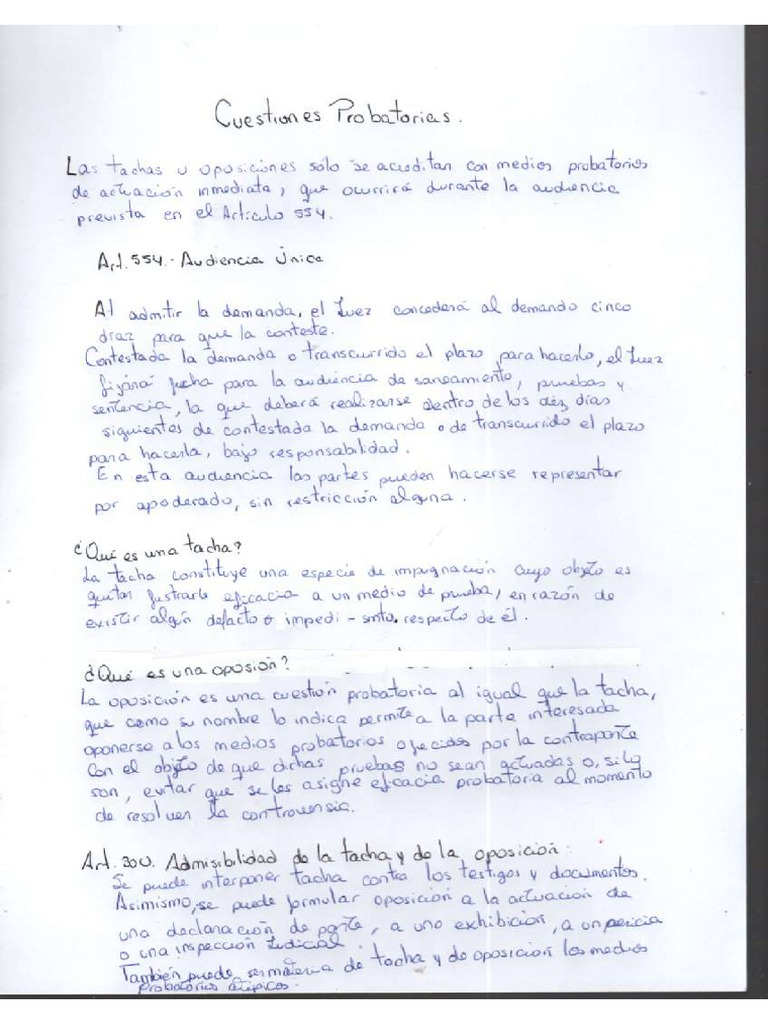 Cuestiones Probatorias.
Las tachas u oposiciones sólo se acreditan con medios probatorios
de actuación inmediata, que ocurrirá durante la audiencia
prevista en el Artículo 554.
Art. 554.- Audiencia Única
Al admitir la demanda, el Juez concederá al demando cinco
díaz para que la conteste.
Contestada la demanda o transcurrido el plazo para hacerlo, el Juez
fijará fecha para la audiencia de saneamiento, pruebas y
sentencia, la que deberá realizarse dentro de los diez días
siguientes de contestada la demanda o de transcurrido el plazo
para hacerla, bajo responsabilidad.
En esta audiencia las partes pueden hacerse representar
por apoderado, sin restricción alguna.
¿Qué es una tacha?
La tacha constituye una especie de impugnación cuyo objeto es
quitar eficacia a un medio de prueba, en razón de
existir algún defecto o impedi-mto. respecto de él.
¿Qué es una oposión?
La oposición es una cuestión probatoria al igual que la tacha,
que como su nombre lo indica permite a la parte interesada
oponerse a los medios probatorios ofecidos por la contraparte
Con el objeto de que dichas pruebas no sean actuadas o, si lo
son, evitar que se les asigne eficacia probatoria al momento
de resolver la controversia.
Art. 300. Admisibilidad de la tacha y de la oposición:
Se puede interponer tacha contra los testigos y documentos.
Asimismo, se puede formular oposición a la actuación de
una declaración de parte, a uno exhibición, a un pericia
o una inspección Judicial.
También puede ser materia de tacha y de oposición los medios
probatorios atípicos.